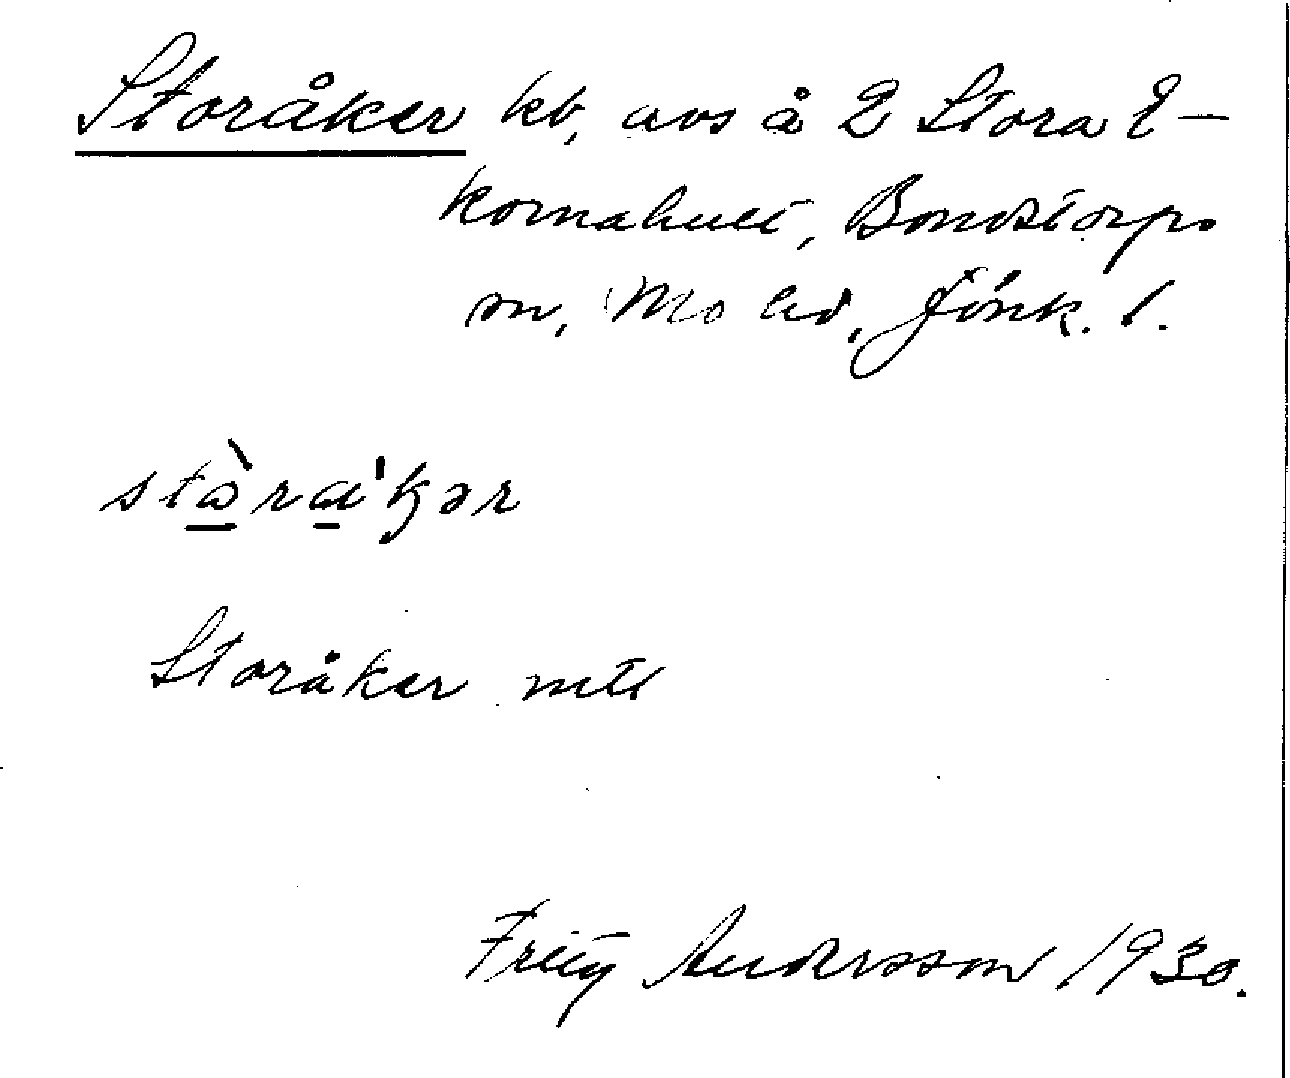 Storåker kb, avs å 2 Stora E-
kornahult, Bondstorps
sn, Mo hd, Jönk. l.
stòrå'kər
Storåker mtl
Fritz Andersson 1930.